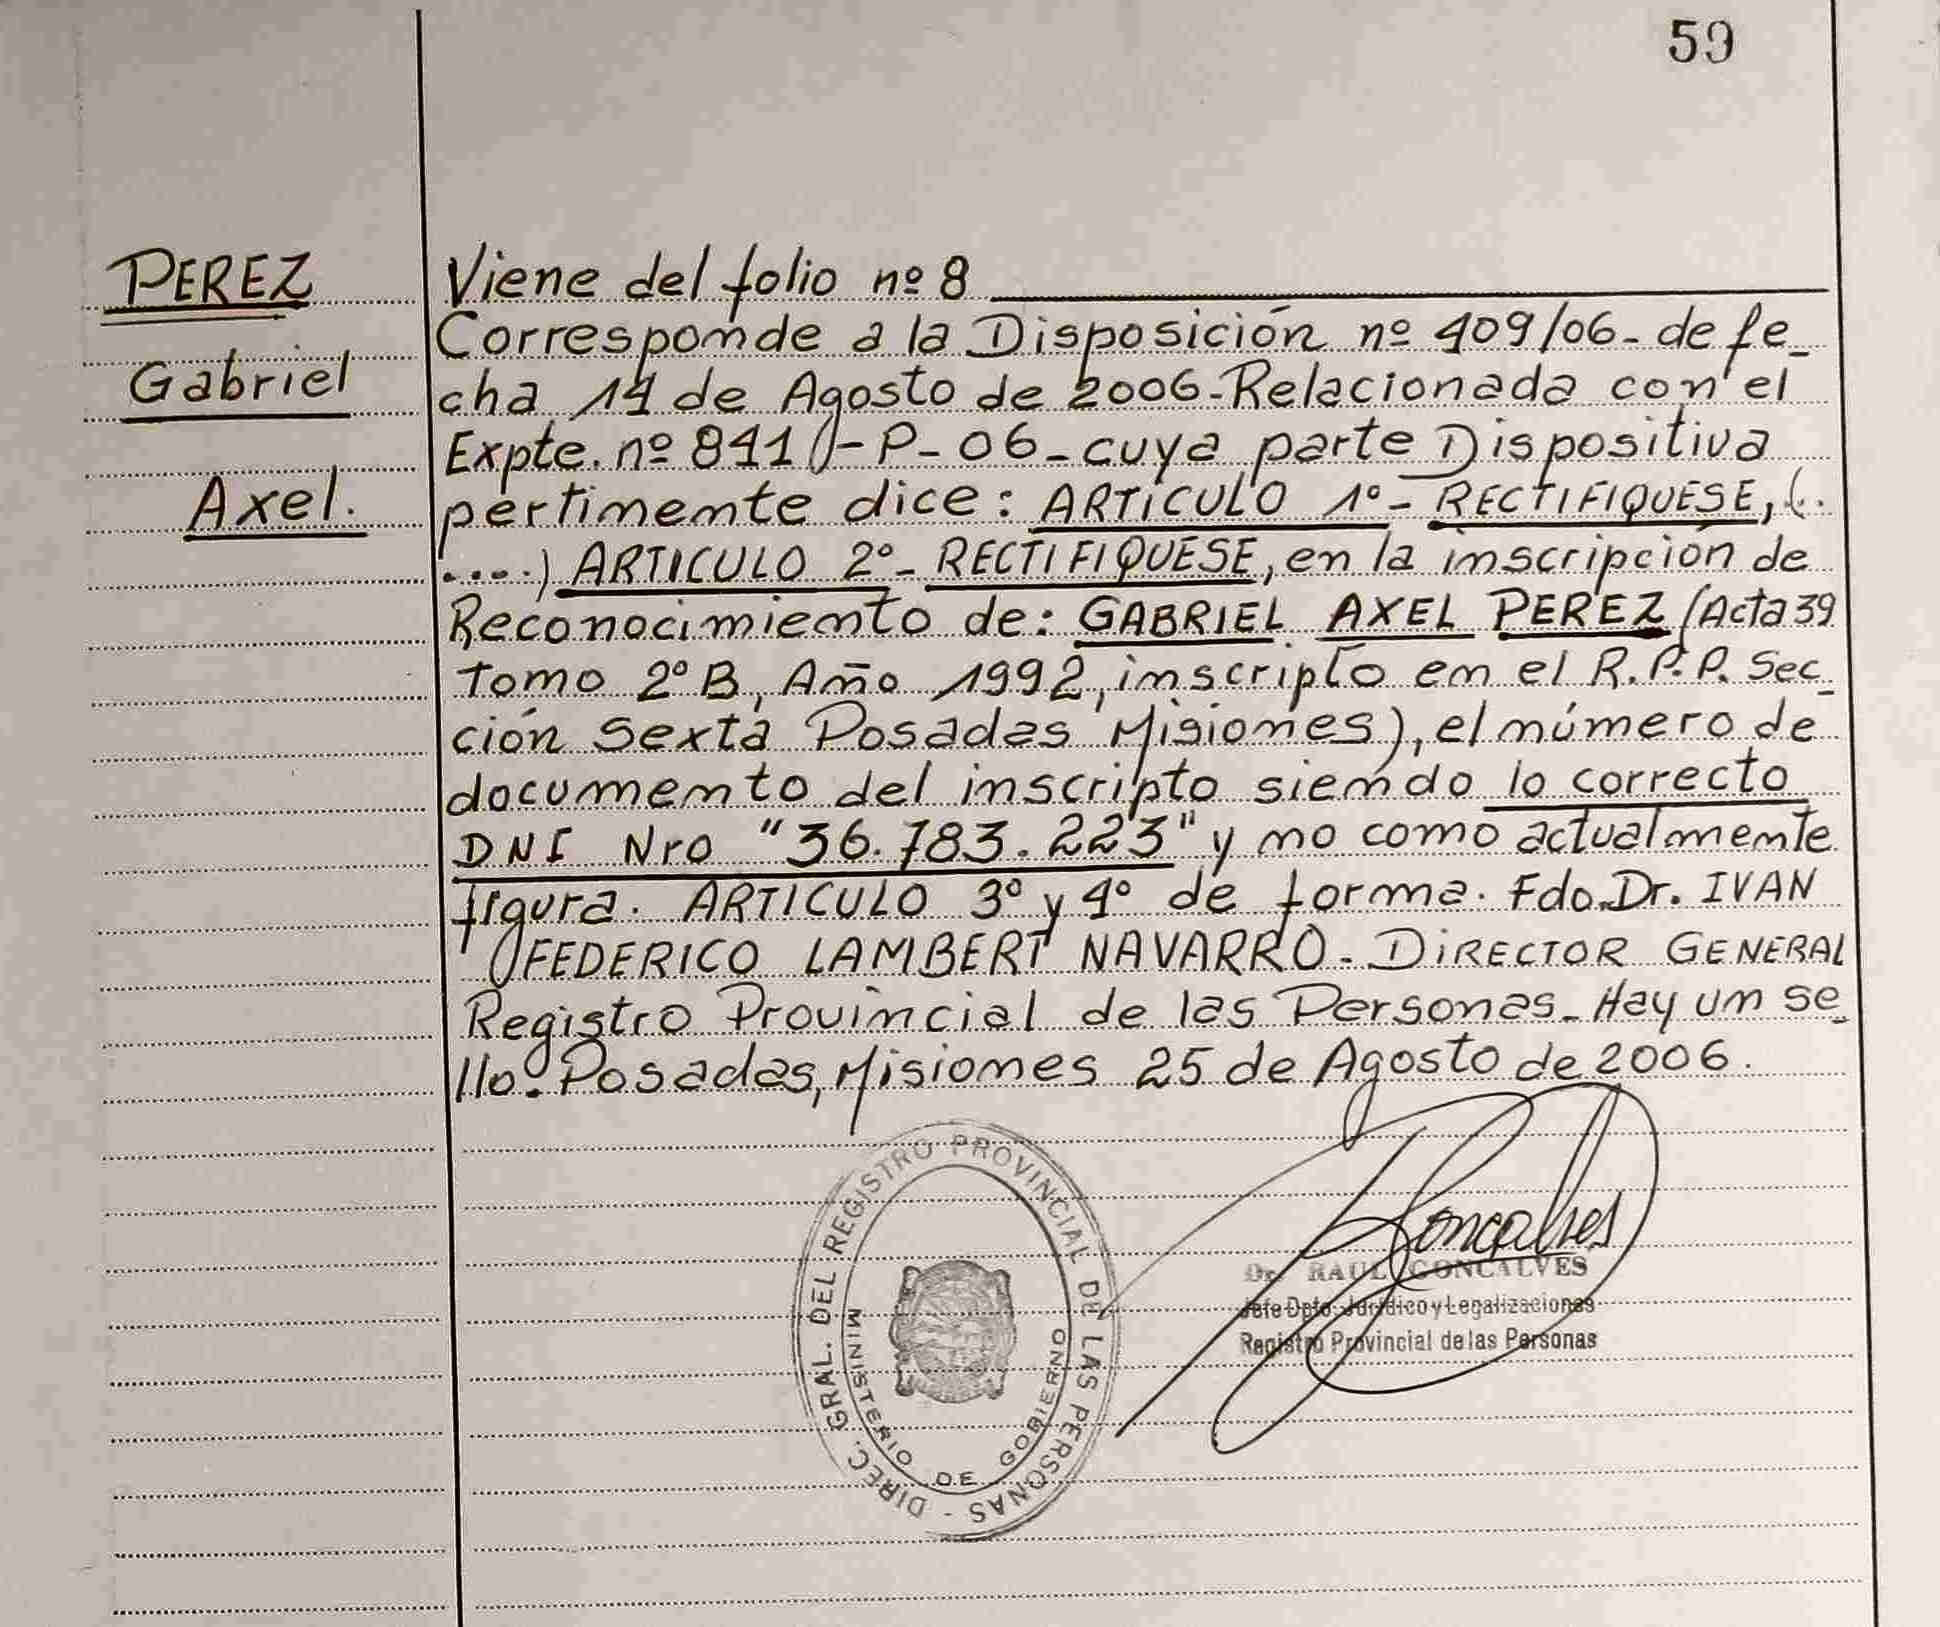 59
PEREZ
Gabriel
Axel.
Viene del folio nº 8
Corresponde a la Disposición nº 409/06- de fe-
cha 14 de Agosto de 2006-Relacionada con el
Expte. nº 841 -P-06-cuya parte Dispositiva
pertinente dice: ARTICULO 1º- RECTIFIQUESE, (.
....) ARTICULO 2º- RECTIFIQUESE, en la inscripción de
Reconocimiento de: GABRIEL AXEL PEREZ (Acta 39
Tomo 2º B, Año 1992, inscripto en el R.P.P. Sec-
ción Sexta Posadas Misiones), el número de
documento del inscripto siendo lo correcto
DNI Nro "36.783.223" y no como actualmente
figura. ARTICULO 3º y 4º de forma. Fdo. Dr. IVAN
FEDERICO LAMBERT NAVARRO- DIRECTOR GENERAL
Registro Provincial de las Personas- Hay un se-
llo. Posadas, Misiones 25 de Agosto de 2006.
DIREC. GRAL. DEL REGISTRO PROVINCIAL DE LAS PERSONAS -
MINISTERIO DE GOBIERNO
Goncalves
Dr. RAUL GONCALVES
Jefe Dpto. Jurídico y Legalizaciones
Registro Provincial de las Personas